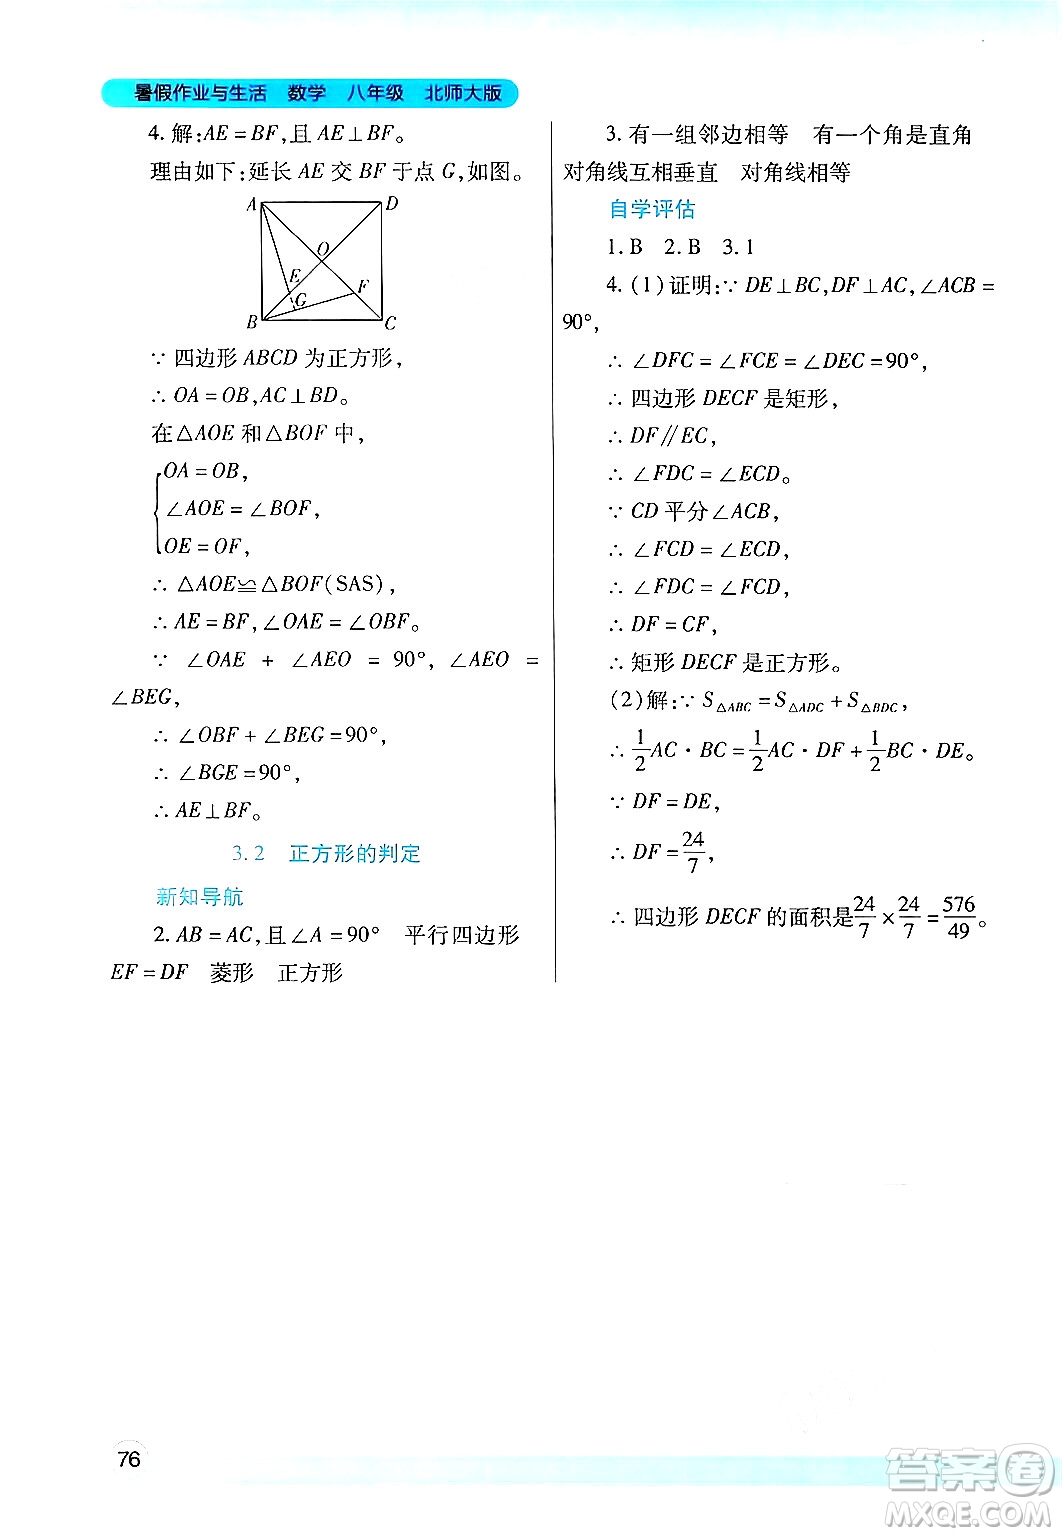 暑假作业与生活 数学 八年级 北师大版
4.解:AE=BF,且AE⊥BF。
理由如下:延长AE交BF于点G,如图。
A D
O
E
F
G
B C
∵四边形ABCD为正方形,
∴OA=OB,AC⊥BD。
在△AOE和△BOF中,
OA=OB,
∠AOE=∠BOF,
OE=OF,
∴△AOE≌△BOF(SAS),
∴AE=BF,∠OAE=∠OBF。
∵ ∠OAE + ∠AEO = 90°, ∠AEO =
∠BEG,
∴∠OBF+∠BEG=90°,
∴∠BGE=90°,
∴AE⊥BF。
3.2 正方形的判定
新知导航
2.AB=AC,且∠A=90° 平行四边形
EF=DF 菱形 正方形
3.有一组邻边相等 有一个角是直角
对角线互相垂直 对角线相等
自学评估
1.B 2.B 3.1
4.(1)证明:∵DE⊥BC,DF⊥AC,∠ACB=
90°,
∴∠DFC=∠FCE=∠DEC=90°,
∴四边形DECF是矩形,
∴DF∥EC,
∴∠FDC=∠ECD。
∵CD平分∠ACB,
∴∠FCD=∠ECD,
∴∠FDC=∠FCD,
∴DF=CF,
∴矩形DECF是正方形。
(2)解:∵S△ABC=S△ADC+S△BDC,
∴1/2AC·BC=1/2AC·DF+1/2BC·DE。
∵DF=DE,
∴DF=24/7,
∴四边形DECF的面积是24/7×24/7=576/49。
76
答案圈
MXQE.COM